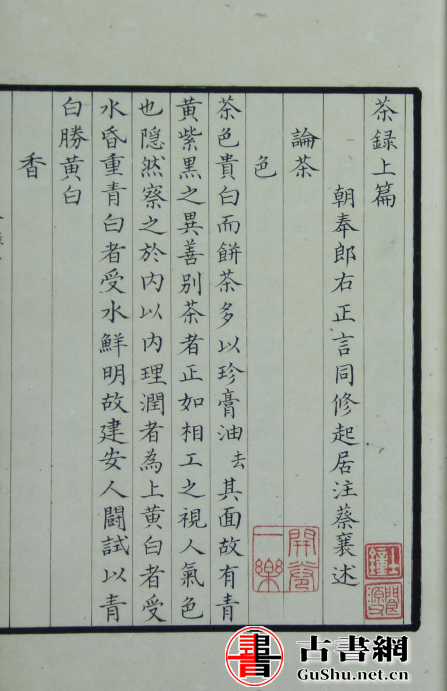 茶録上篇
朝奉郎右正言同修起居注蔡襄述
論茶
色
茶色貴白而餅茶多以珍膏油去其面故有青
黃紫黑之異善別茶者正如相工之視人氣色
也隱然察之於內以內理潤者為上黃白者受
水昏重青白者受水鮮明故建安人闘試以青
白勝黃白
香
開卷
一樂
古書網
GuShu.net.cn